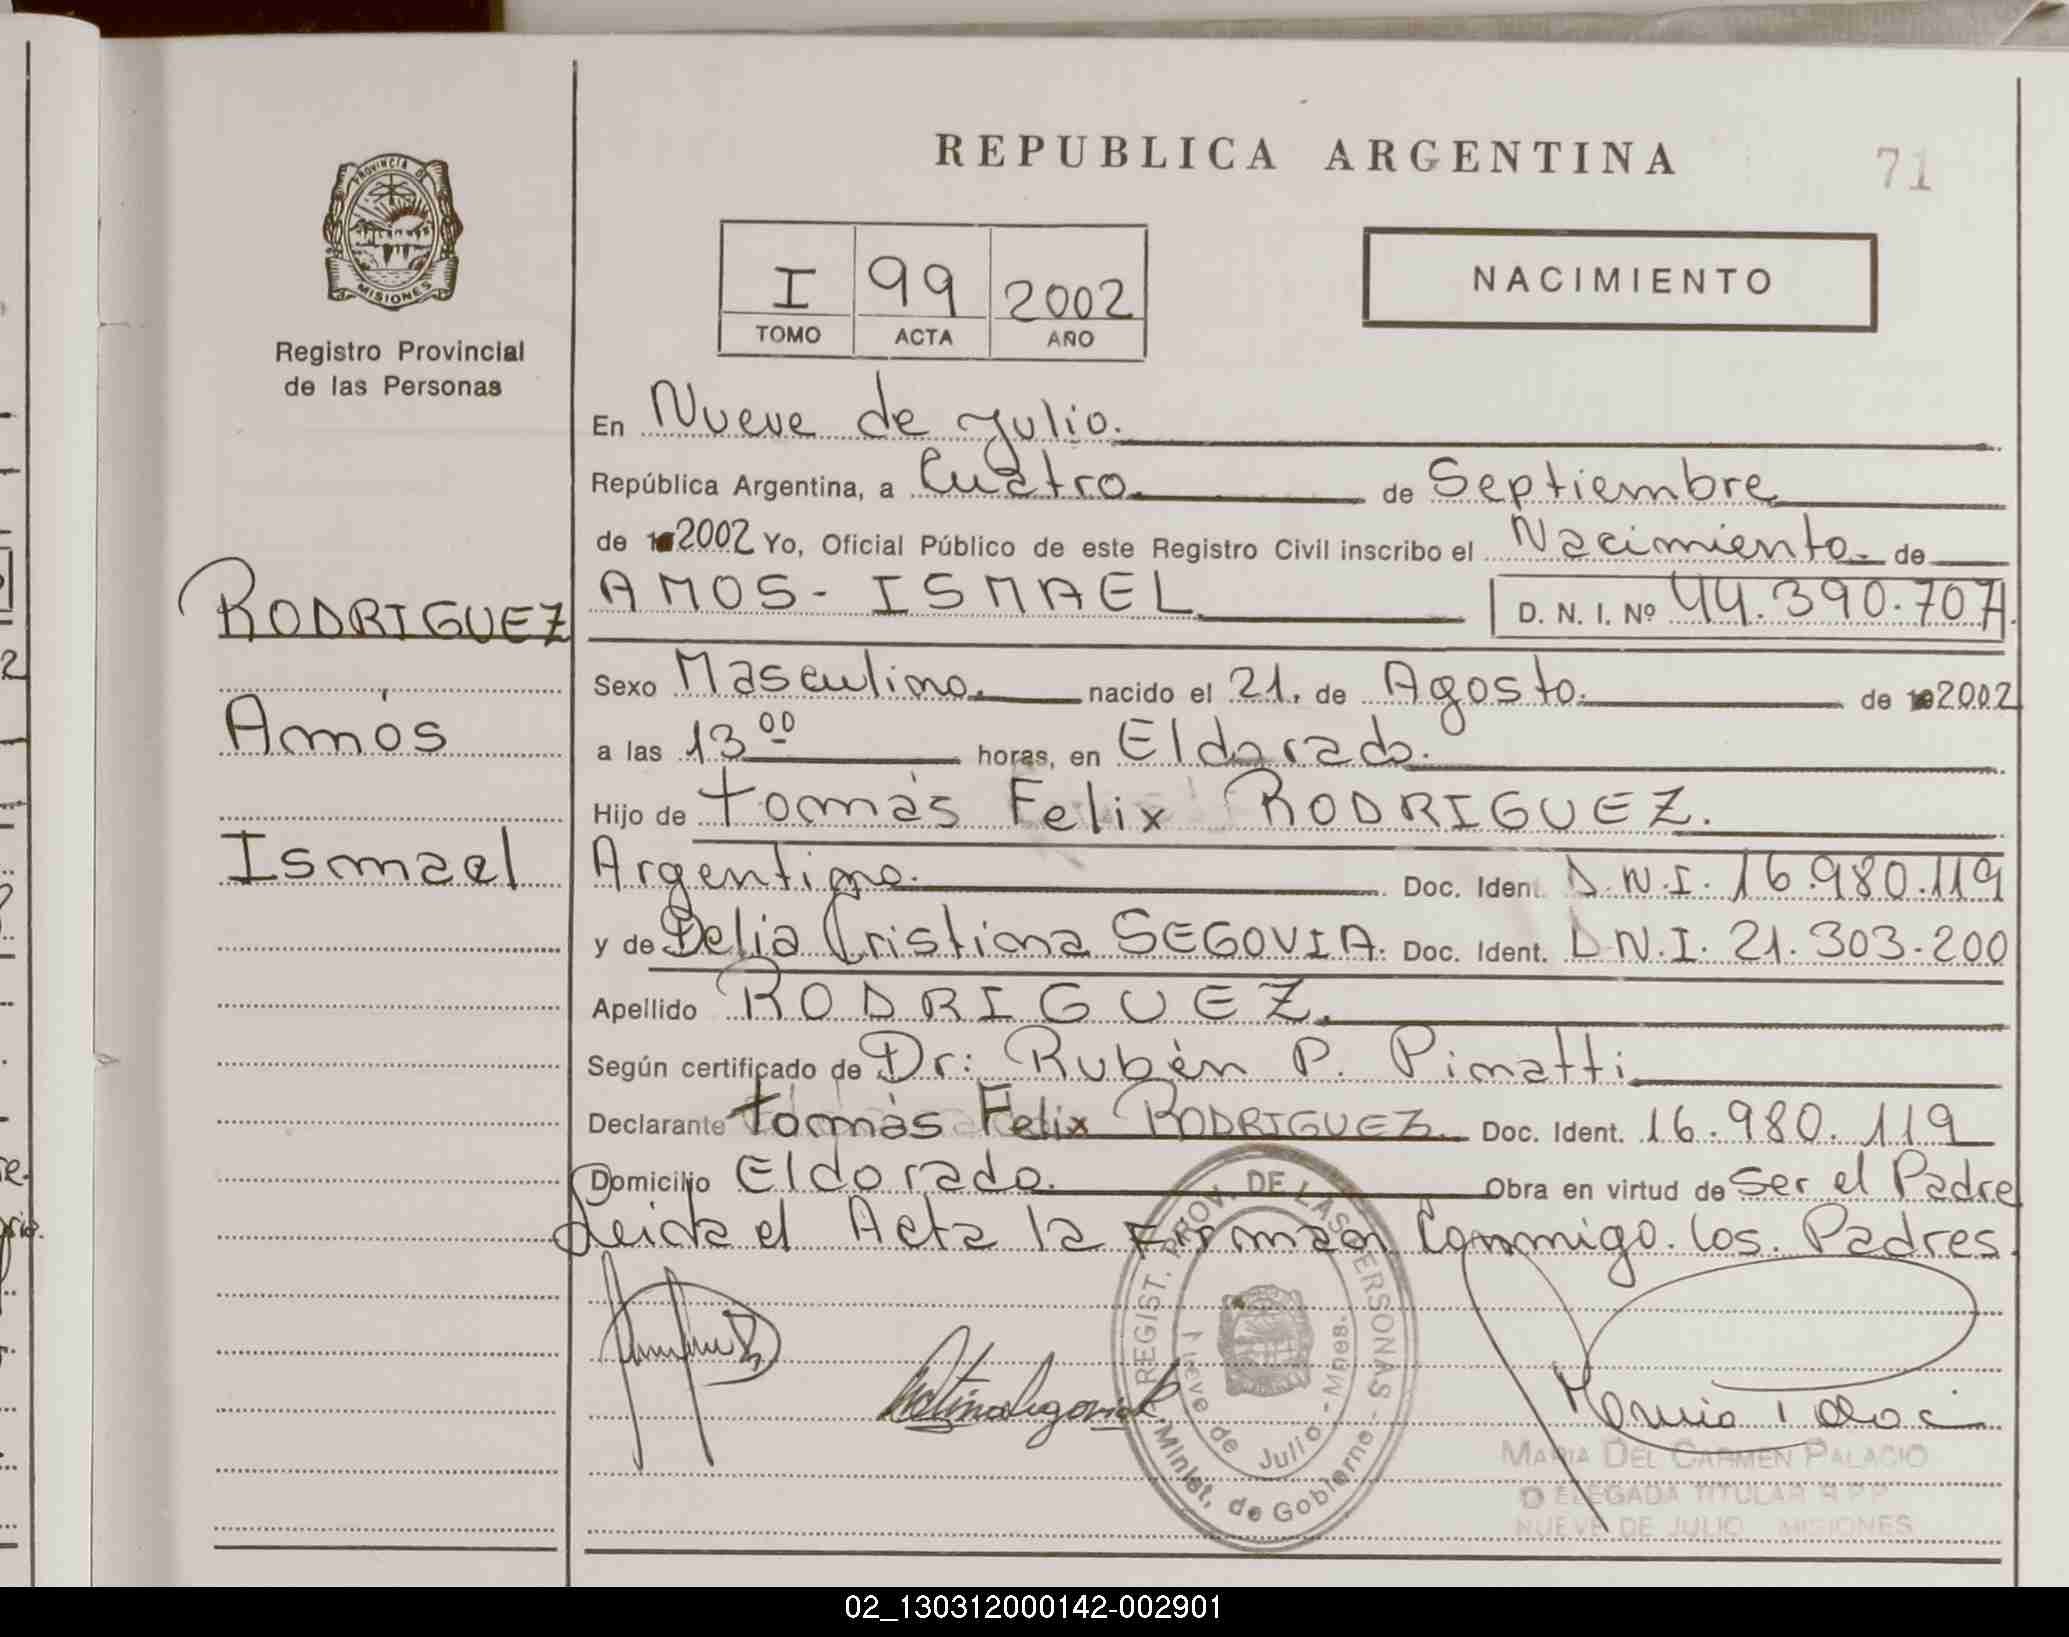 REPUBLICA ARGENTINA
71
PROVINCIA DE
MISIONES
Registro Provincial
de las Personas
I 99 2002
TOMO ACTA AÑO
NACIMIENTO
En Nueve de Julio.
República Argentina, a Cuatro de Septiembre
de 2002 Yo, Oficial Público de este Registro Civil inscribo el Nacimiento de
AMOS - ISMAEL D. N. I. Nº 44.390.707
RODRIGUEZ
Amós
Ismael
Sexo Masculino. nacido el 21. de Agosto. de 2002
a las 13 00 horas, en Eldorado.
Hijo de Tomás Felix RODRIGUEZ.
Argentino. Doc. Ident. D.N.I. 16.980.119
y de Delia Cristina SEGOVIA. Doc. Ident. D.N.I. 21.303.200
Apellido RODRIGUEZ.
Según certificado de Dr: Rubén P. Pinatti
Declarante Tomás Felix RODRIGUEZ. Doc. Ident. 16.980.119
Domicilio Eldorado. Obra en virtud de Ser el Padre
Leida el Acta la Firman Conmigo. los. Padres.
REGIST. PROV. DE LAS PERSONAS - Minist. de Gobierno -
Nueve de Julio - Mnes.
MARIA DEL CARMEN PALACIO
DELEGADA TITULAR R.P.P.
NUEVE DE JULIO MISIONES
02_130312000142-002901